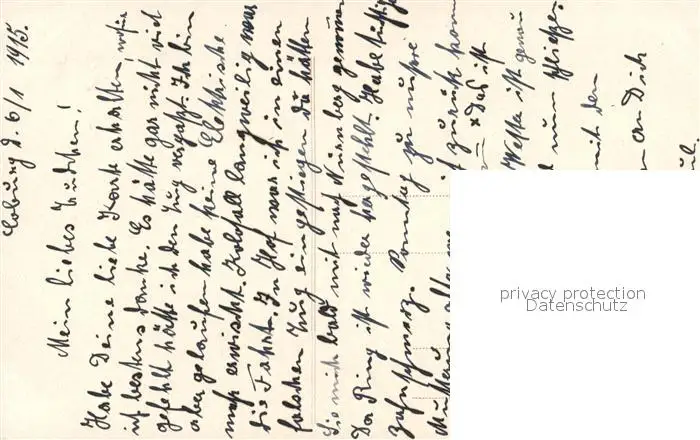 Coburg d. 6/1 1915.
Mein liebes Hudchen!
Habe Deine liebe Karte erhalten, wofür
ich bestens danke. Es hätte gar nicht viel
gefehlt hätte ich den Zug verpaßt. Ich bin
aber gelaufen habe keine Elektrische
mehr erwischt. Kolossal langweilig war
die Fahrt. In Hof war ich in einen
falschen Zug eingestiegen da hätten
Sie mich bald mit nach Nürnberg genommen
Der Ring ist wieder hergestellt. Habe
Zahnschmerz. Sonntag zu
zurück
x das ist
Weste ist genau
nun schließen
mit den
an Dich
privacy protection
Datenschutz